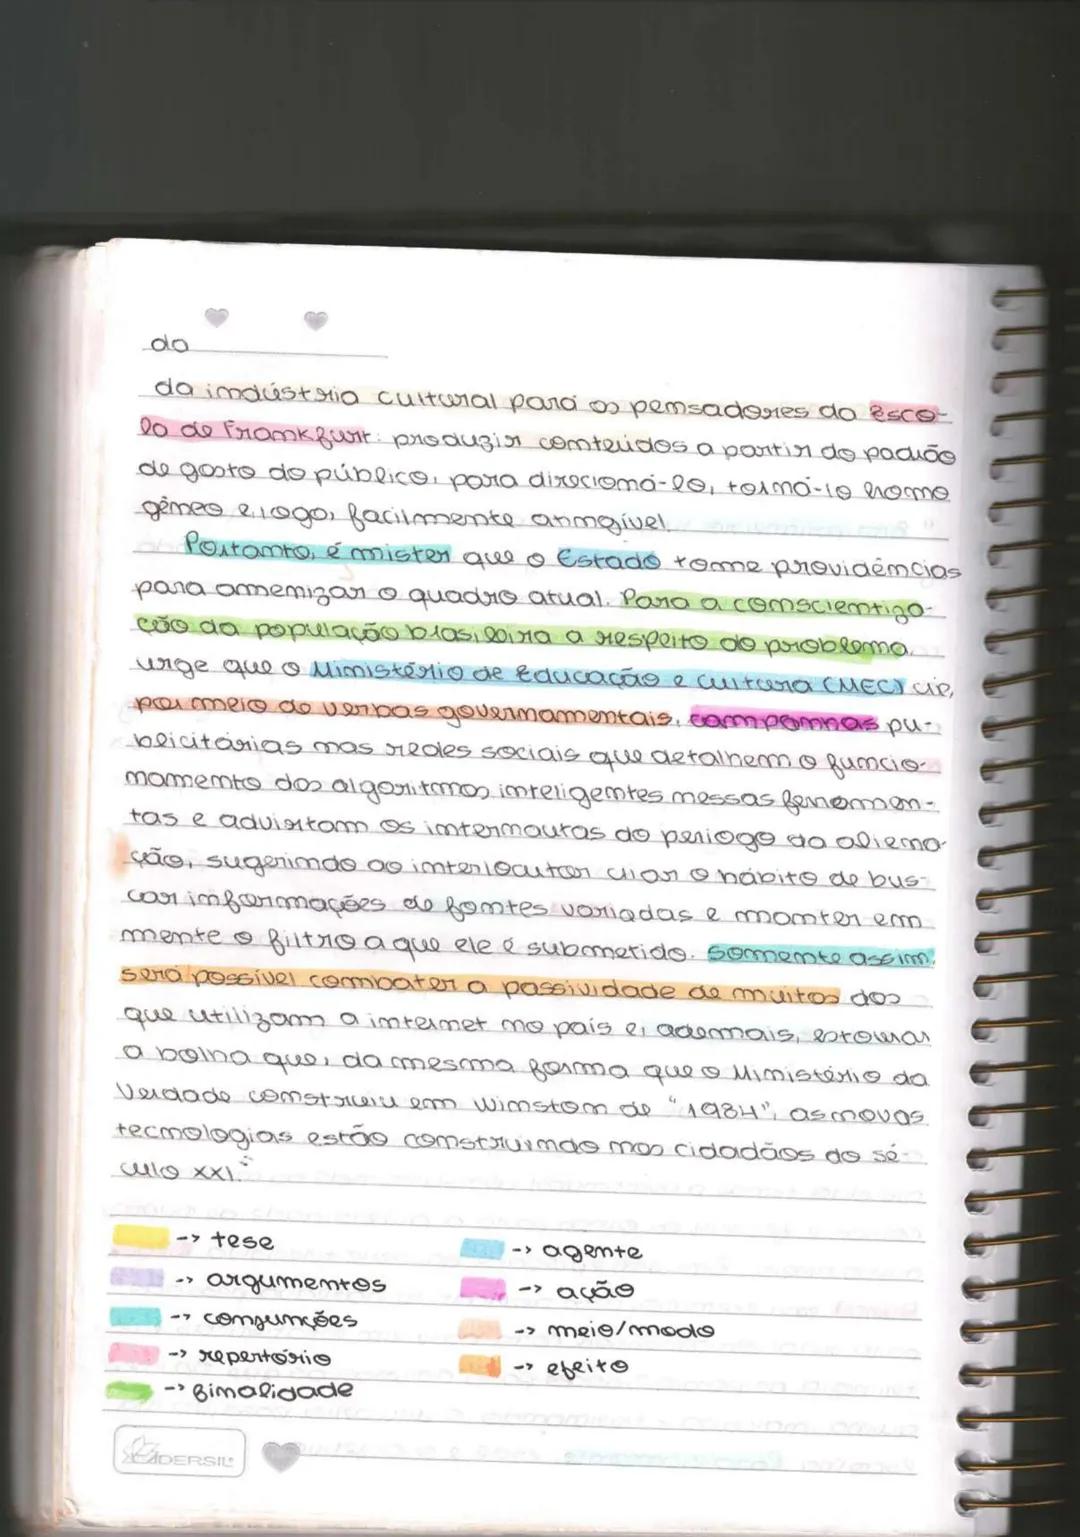 do
da indústria cultural para os pensadores da esco-
la de Frankfurt: produzir conteúdos a partir do padrão
de gosto do público, para direcioná-lo, torná-lo homo
gêneo e, logo, facilmente atingível.
Portanto, é mister que o Estado tome providências
para amenizar o quadro atual. Para a conscientiza-
ção da população brasileira a respeito do problema,
urge que o Ministério de Educação e Cultura (MEC) crie,
por meio de verbas governamentais, campanhas pu-
blicitárias nas redes sociais que detalhem o funcio-
namento dos algoritmos inteligentes nessas ferramen-
tas e advirtam os internautas do perigo da aliena-
ção, sugerindo ao interlocutor criar o hábito de bus-
car informações de fontes variadas e manter em
mente o filtro a que ele é submetido. Somente assim,
será possível combater a passividade de muitos dos
que utilizam a internet no país e, ademais, estourar
a bolha que, da mesma forma que o Ministério da
Verdade construiu em Winston de "1984", as novas
tecnologias estão construindo nos cidadãos do sé-
culo XXI."
-> tese
-> agente
-> argumentos
-> ação
-> conjunções
-> meio/modo
-> repertório
-> efeito
-> finalidade
CADERSIL